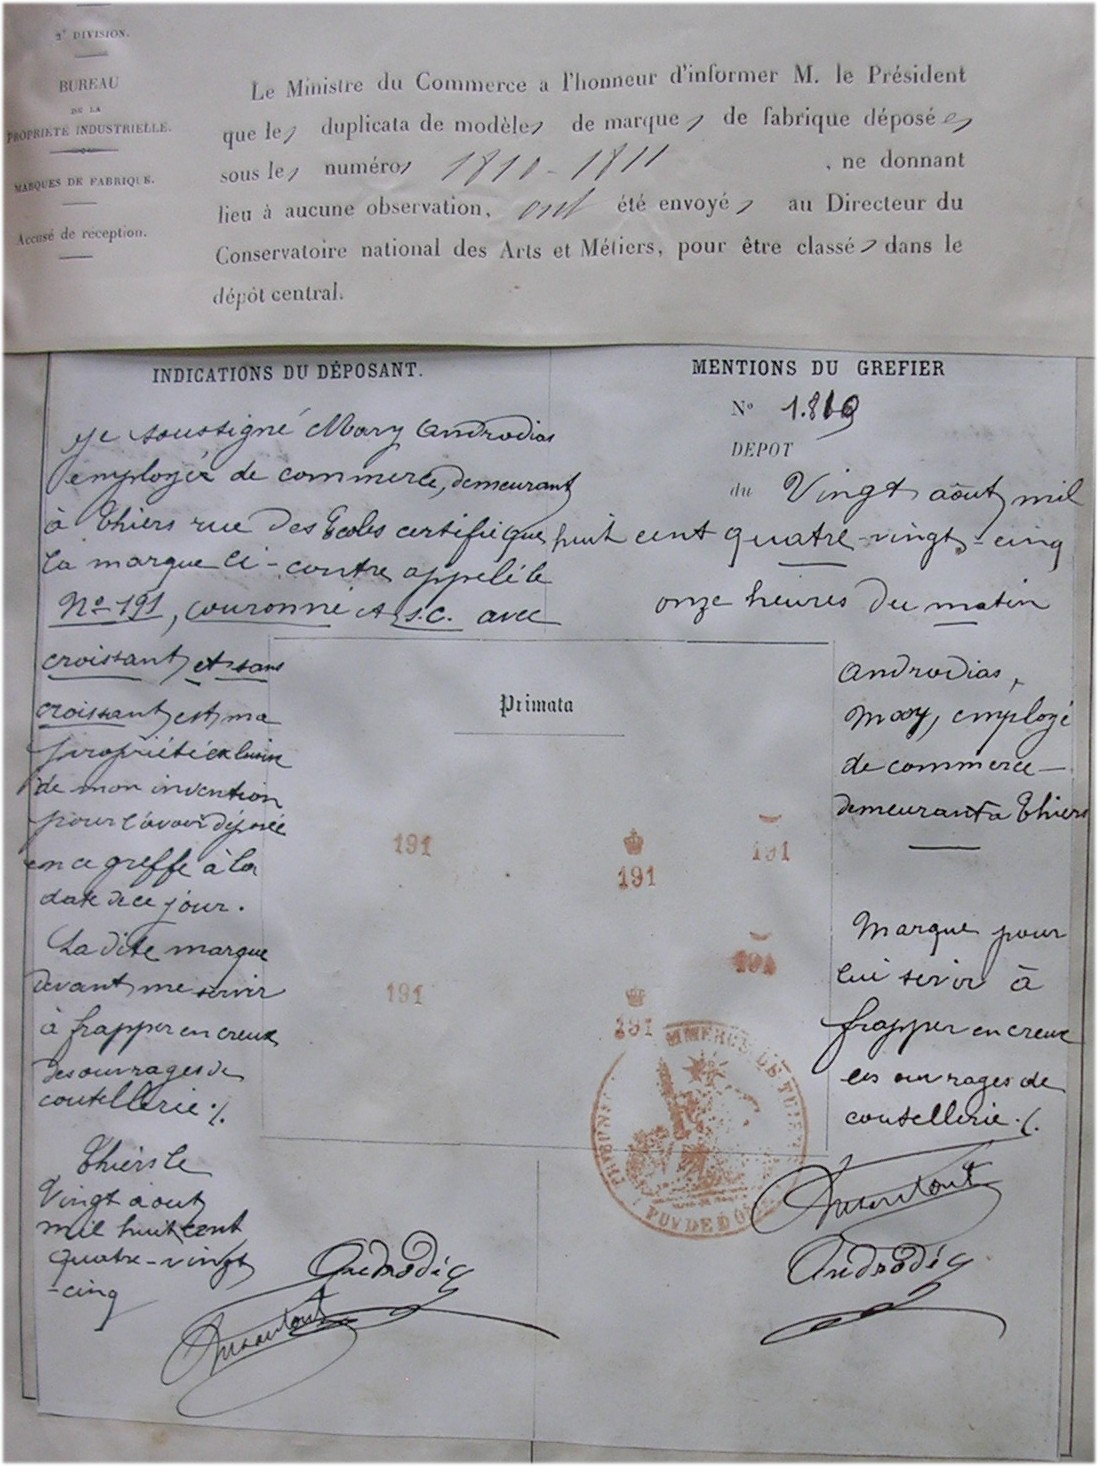 2e DIVISION.
BUREAU
DE LA
PROPRIÉTÉ INDUSTRIELLE.
MARQUES DE FABRIQUE.
Accusé de réception.
Le Ministre du Commerce a l'honneur d'informer M. le Président
que les duplicata de modèles de marques de fabrique déposées
sous les numéros 1810 - 1811, ne donnant
lieu à aucune observation, ont été envoyés au Directeur du
Conservatoire national des Arts et Métiers, pour être classés dans le
dépôt central.
INDICATIONS DU DÉPOSANT.
Je soussigné Mary Androdias
employé de commerce, demeurant
à Thiers rue des Ecoles certifie que
la marque ci-contre appelé le
No 191, couronné et s.c. avec
croissant et sans
croissant est ma
propriété
de mon invention
pour l'avoir déposée
en ce greffe à la
date de ce jour.
La dite marque
devant me servir
à frapper en creux
des ouvrages de
coutellerie ./.
Thiers le
Vingt aout
mil huit cent
quatre-vingt
-cinq
Androdias
MENTIONS DU GREFIER
No 1.810
DEPOT
du Vingt août mil
huit cent quatre-vingt-cinq
onze heures du matin
Androdias,
Mary, employé
de commerce
demeurant à Thiers
Marque pour
lui servir à
frapper en creux
les ouvrages de
coutellerie ./.
Androdias
Primata
191
191
191
191
191
191
TRIBUNAL COMMERCE DE THIERS
PUY DE DÔME